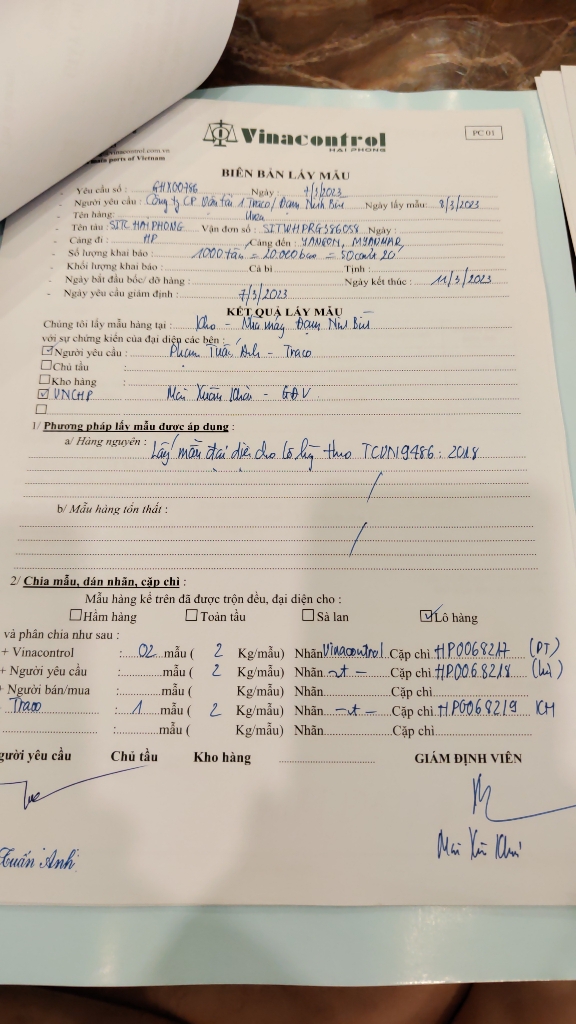 vinacontrol.com.vn
main ports of Vietnam
Vinacontrol
HAI PHONG
PC 01
BIÊN BẢN LẤY MẪU
- Yêu cầu số : GHX00786 Ngày : 7/3/2023
- Người yêu cầu : Công ty CP Vận tải 1 Traco / Đạm Ninh Bình Ngày lấy mẫu: 8/3/2023
- Tên hàng: Urea
- Tên tàu : SITC HAI PHONG Vận đơn số : SITWHPRG386058 Ngày :
- Cảng đi : HP Cảng đến : YANGON, MYANMAR
- Số lượng khai báo : 1000 tấn = 20.000 bao = 50 cont x 20'
- Khối lượng khai báo : Cả bì : Tịnh :
- Ngày bắt đầu bốc/ dỡ hàng : Ngày kết thúc : 11/3/2023
- Ngày yêu cầu giám định : 7/3/2023
KẾT QUẢ LẤY MẪU
Chúng tôi lấy mẫu hàng tại : Kho - Nhà máy Đạm Ninh Bình
với sự chứng kiến của đại diện các bên :
Người yêu cầu : Phạm Tuấn Anh - Traco
Chủ tầu :
Kho hàng :
VNCHP Mai Xuân Khải - GĐV
1/ Phương pháp lấy mẫu được áp dụng :
a/ Hàng nguyên : Lấy mẫu đại diện cho lô hàng theo TCVN 9486 : 2018
b/ Mẫu hàng tổn thất :
2/ Chia mẫu, dán nhãn, cặp chì :
Mẫu hàng kể trên đã được trộn đều, đại diện cho :
Hầm hàng Toàn tầu Sà lan Lô hàng
và phân chia như sau :
+ Vinacontrol : 02 mẫu ( 2 Kg/mẫu) Nhãn Vinacontrol Cặp chì HP0068217 (PT)
+ Người yêu cầu : mẫu ( 2 Kg/mẫu) Nhãn -nt- Cặp chì HP0068218 (lưu)
+ Người bán/mua : mẫu ( Kg/mẫu) Nhãn Cặp chì
Traco : 1 mẫu ( 2 Kg/mẫu) Nhãn -nt- Cặp chì HP0068219 KH
: mẫu ( Kg/mẫu) Nhãn Cặp chì
gười yêu cầu Chủ tầu Kho hàng GIÁM ĐỊNH VIÊN
Tuấn Anh